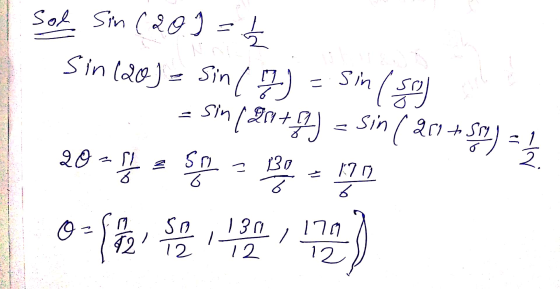 Sol Sin(2θ) = 1/2
Sin(2θ) = Sin(π/6) = Sin(5π/6)
= Sin(2π+π/6) = Sin(2π+5π/6) = 1/2.
2θ = π/6 = 5π/6 = 13π/6 = 17π/6
θ = {π/12, 5π/12, 13π/12, 17π/12}